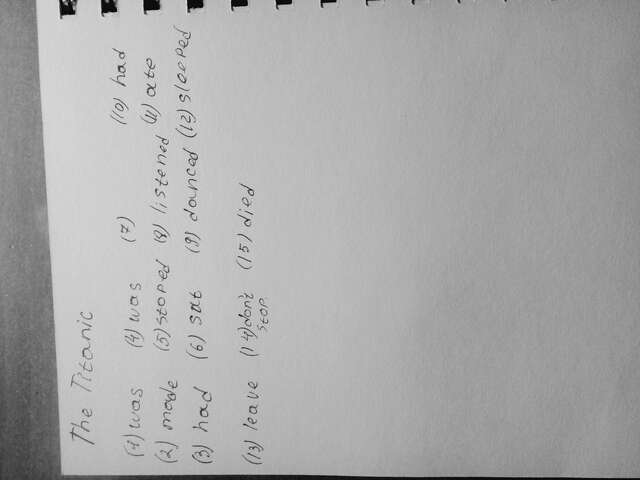 The Titanic
(1) was (4) was (7) (10) had
(2) made (5) stoped (8) listened (11) ate
(3) had (6) sat (9) danced (12) sleeped
(13) leave (14) don't stop (15) died